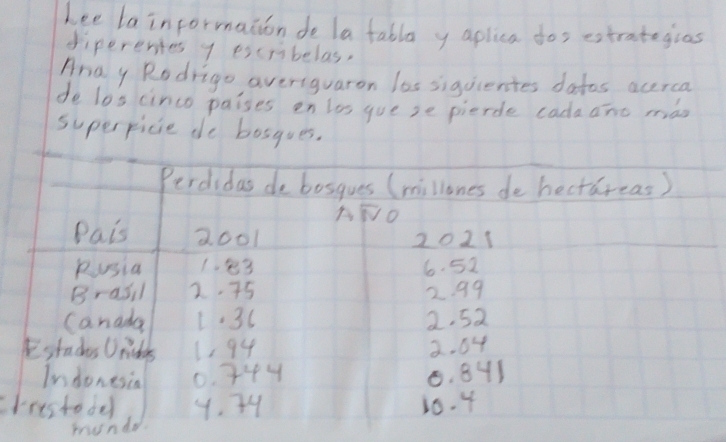 Lee la información de la tabla y aplica dos estrategias
diferentes y escribelas.
Ana y Rodrigo averiguaron las siguientes datos acerca
de los cinco paises en los que se pierde cada año más
superficie de bosques.
Perdidas de bosques (millones de hectáreas)
AÑO
País 2001 2021
Rusia 1.83 6.52
Brasil 2.75 2.99
Canada 1.36 2.52
Estados Unidos 1.94 2.04
Indonesia 0.744 0.841
El resto del 4.74 10.4
mundo.